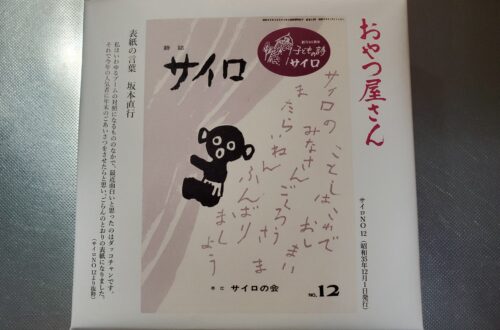 おやつ屋さん
サイロNO 12（昭和35年12月1日発行）
雑誌
サイロ
子どもの詩
サイロ
サイロの ことし生いわで
みなさん おし
ま ごくろう まい
たらいねん さ
ふんばり ま
ましょう
発行 サイロの会
NO.12
表紙の言葉 坂本直行
私はいわゆるブームの対照になるもののなかで、最近面白いと思ったのはダッコチャンです。
それで今年の人気者に年末のごあいさつをさせたらと思い、ごらんのとおりの表紙になりました。
（サイロNO 12より抜粋）